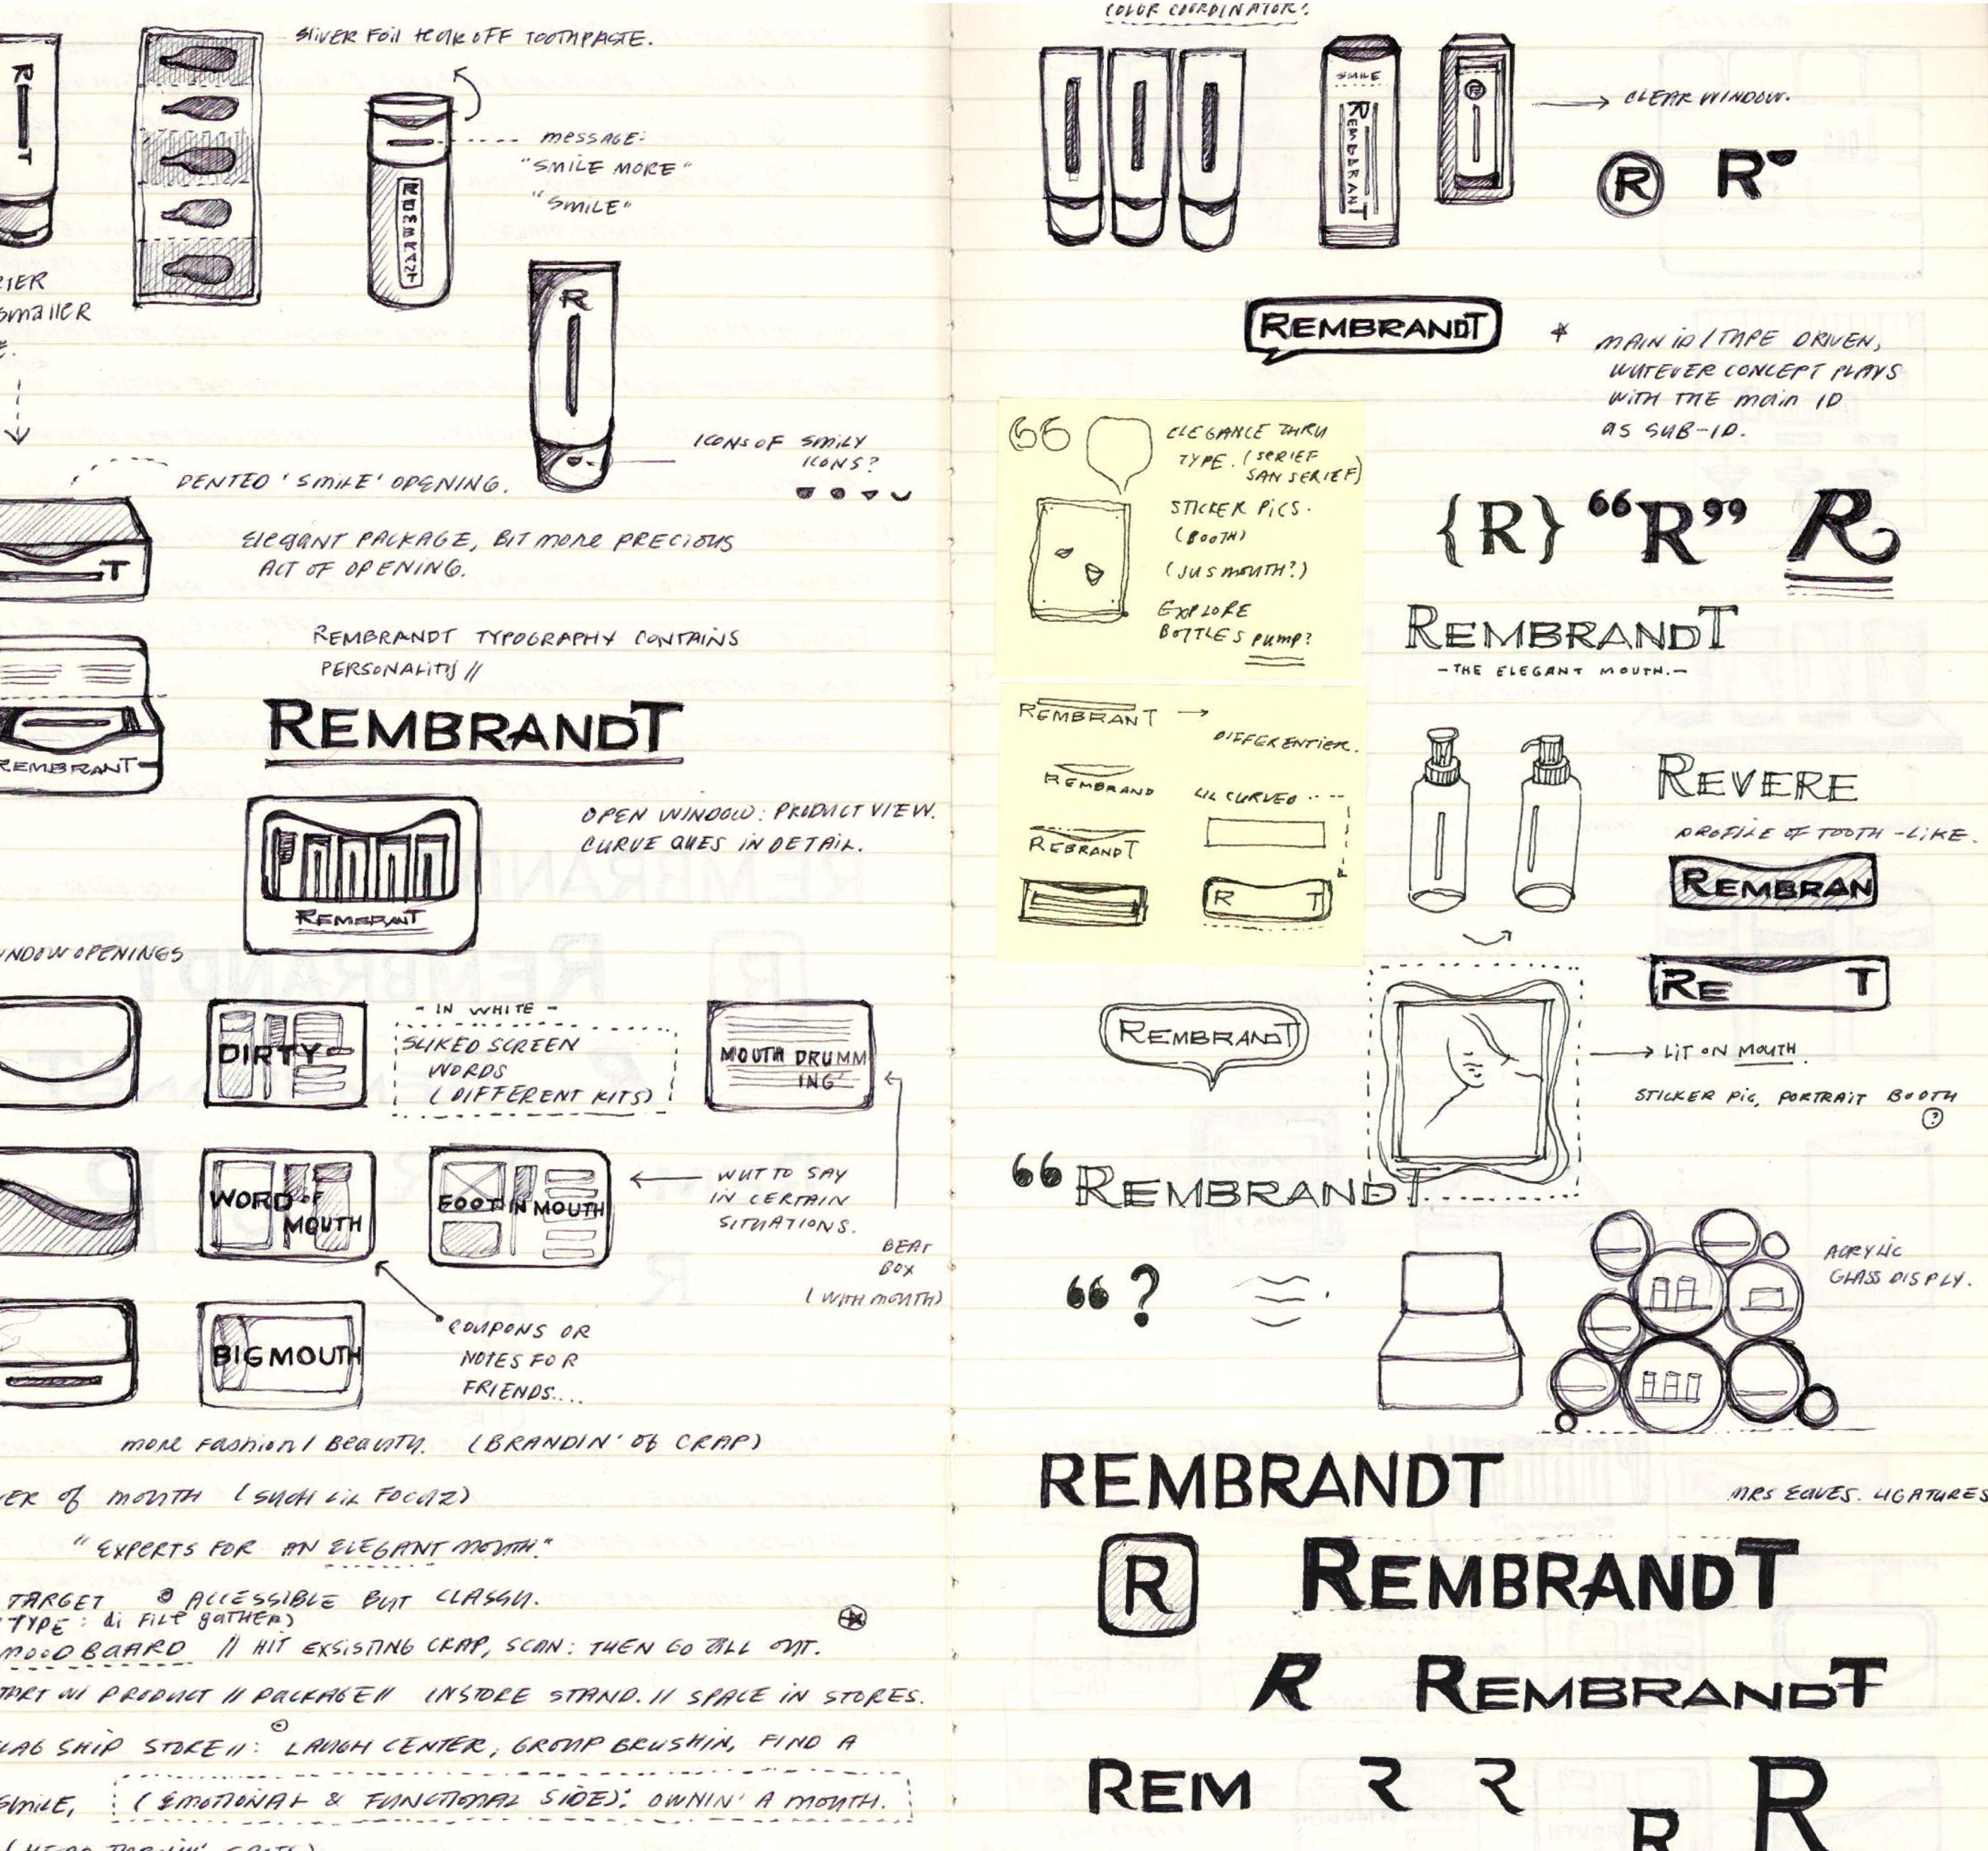 SLIVER FOIL TEAR OFF TOOTHPASTE.
R T
MESSAGE:
"SMILE MORE"
"SMILE"
REMBRANT
SMALLER
R
ICONS OF SMILY
ICONS?
DENTED 'SMILE' OPENING.
ELEGANT PACKAGE, BIT MORE PRECIOUS
ACT OF OPENING.
T
REMBRANDT TYPOGRAPHY CONTAINS
PERSONALITY //
REMBRANDT
REMBRANT
OPEN WINDOW: PRODUCT VIEW.
CURVE QUES IN DETAIL.
REMBRANT
WINDOW OPENINGS
- IN WHITE -
DIRTY
SLIKED SCREEN
WORDS
(DIFFERENT KITS)
MOUTH DRUMM
ING
WORD OF
MOUTH
FOOT IN MOUTH
WUT TO SAY
IN CERTAIN
SITUATIONS.
BEAT
BOX
(WITH MOUTH)
BIG MOUTH
COUPONS OR
NOTES FOR
FRIENDS...
MORE FASHION / BEAUTY. (BRANDIN' OF CRAP)
OF MOUTH (SUCH LIL FOCUZ)
"EXPERTS FOR AN ELEGANT MOUTH."
TARGET ACCESSIBLE BUT CLASSY.
TYPE: di FILE GATHER)
MOOD BOARD // HIT EXSISTING CRAP, SCAN: THEN GO ALL OUT.
W/ PRODUCT // PACKAGE // INSTORE STAND. // SPACE IN STORES.
SHIP STORE //: LAUGH CENTER, GROUP BRUSHIN, FIND A
SMILE, (EMOTIONAL & FUNCTIONAL SIDE): OWNIN' A MOUTH.
COLOR COORDINATOR?
SMILE
REMBRANT
R
CLEAR WINDOW.
R R
REMBRANDT
* MAIN ID / TYPE DRIVEN,
WUTEVER CONCEPT PLAYS
WITH THE MAIN ID
AS SUB-ID.
“ ELEGANCE THRU
TYPE. (SERIEF
SAN SERIEF)
STICKER PICS.
(BOOTH)
(JUS MOUTH?)
EXPLORE
BOTTLES PUMP?
{R} “R” R
REMBRANDT
- THE ELEGANT MOUTH. -
REMBRANT
DIFFERENTIER.
REMBRAND
LIL CURVED
REBRANDT
R T
REVERE
PROFILE OF TOOTH-LIKE.
REMBRAN
RE T
REMBRANDT
LIT ON MOUTH.
STICKER PIC, PORTRAIT BOOTH
?
“ REMBRANDT
“ ?
ACRYLIC
GLASS DISPLY.
REMBRANDT
MRS EAVES. LIGATURES
R REMBRANDT
R REMBRANDT
REM R R R R